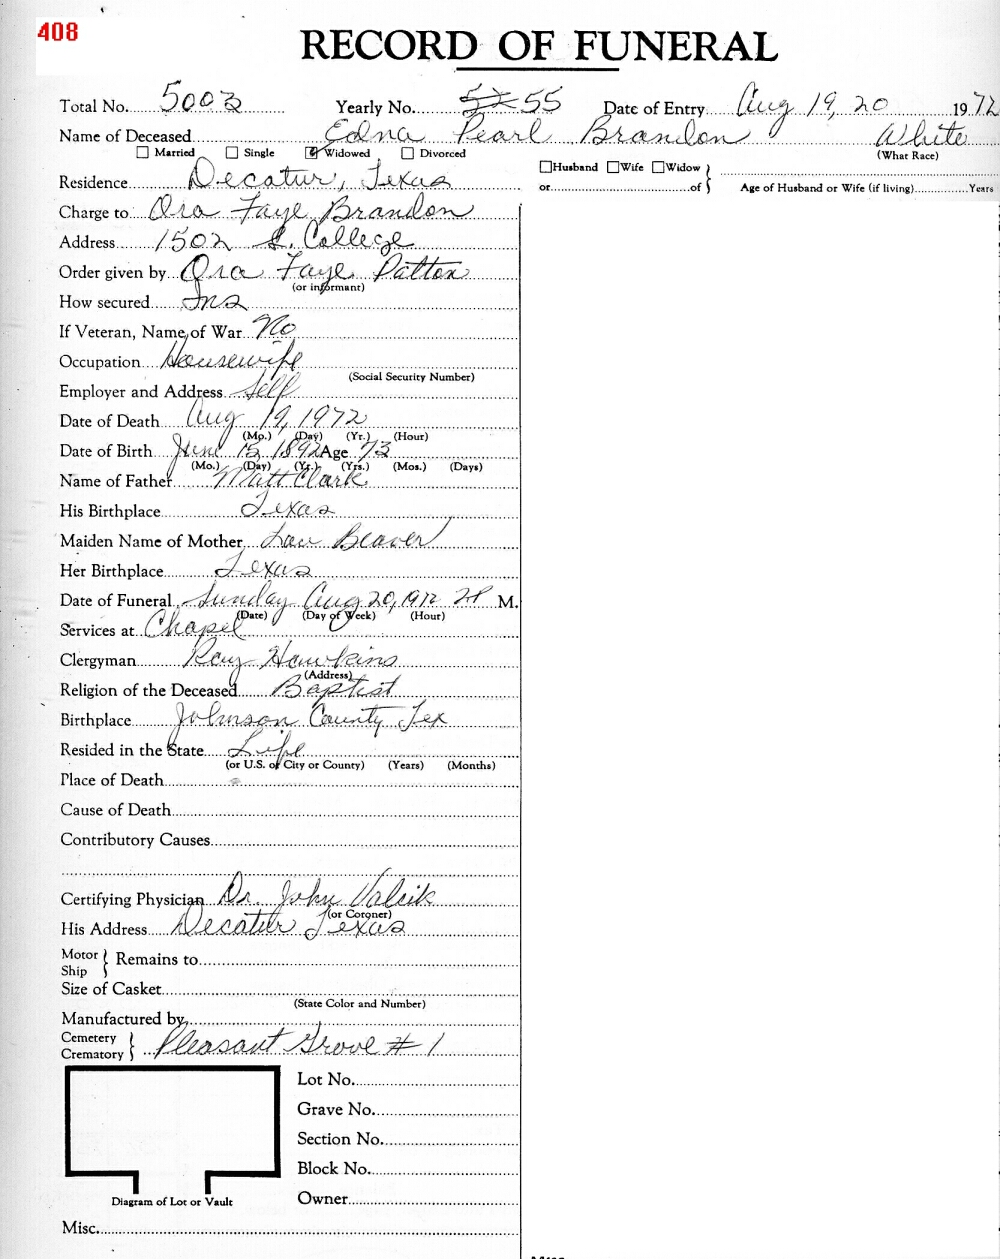 408
RECORD OF FUNERAL
Total No. 5003 Yearly No. 55 Date of Entry Aug 19, 20 1972
Name of Deceased Edna Pearl Brandon White
☐ Married ☐ Single ☑ Widowed ☐ Divorced (What Race)
☐ Husband ☐ Wife ☐ Widow
Residence Decatur, Texas
or of Age of Husband or Wife (if living) Years
Charge to Ora Faye Brandon
Address 1502 S. College
Order given by Ora Faye Patton
(or informant)
How secured Ins
If Veteran, Name of War No
Occupation Housewife
(Social Security Number)
Employer and Address Self
Date of Death Aug 19, 1972
(Mo.) (Day) (Yr.) (Hour)
Date of Birth June 15, 1892 Age 73
(Mo.) (Day) (Yr.) (Yrs.) (Mos.) (Days)
Name of Father Matt Clark
His Birthplace Texas
Maiden Name of Mother Lou Beaver
Her Birthplace Texas
Date of Funeral Sunday Aug 20, 1972 2 P M.
(Date) (Day of Week) (Hour)
Services at Chapel
Clergyman Ray Hawkins
(Address)
Religion of the Deceased Baptist
Birthplace Johnson County Tex
Resided in the State Life
(or U.S. or City or County) (Years) (Months)
Place of Death
Cause of Death
Contributory Causes
Certifying Physician Dr. John Valcik
(or Coroner)
His Address Decatur Texas
Motor
Ship
Remains to
Size of Casket
(State Color and Number)
Manufactured by
Cemetery
Crematory
Pleasant Grove # 1
Lot No.
Grave No.
Section No.
Block No.
Owner
Diagram of Lot or Vault
Misc.